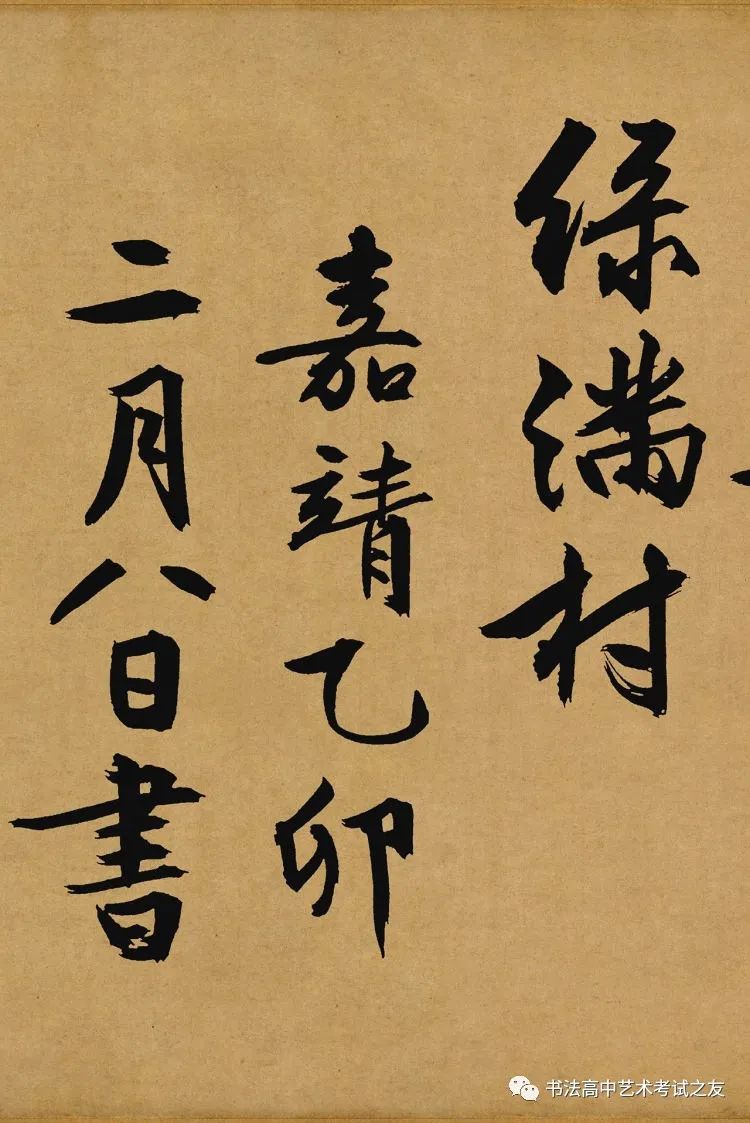 绿满村
嘉靖乙卯
二月八日書
书法高中艺术考试之友